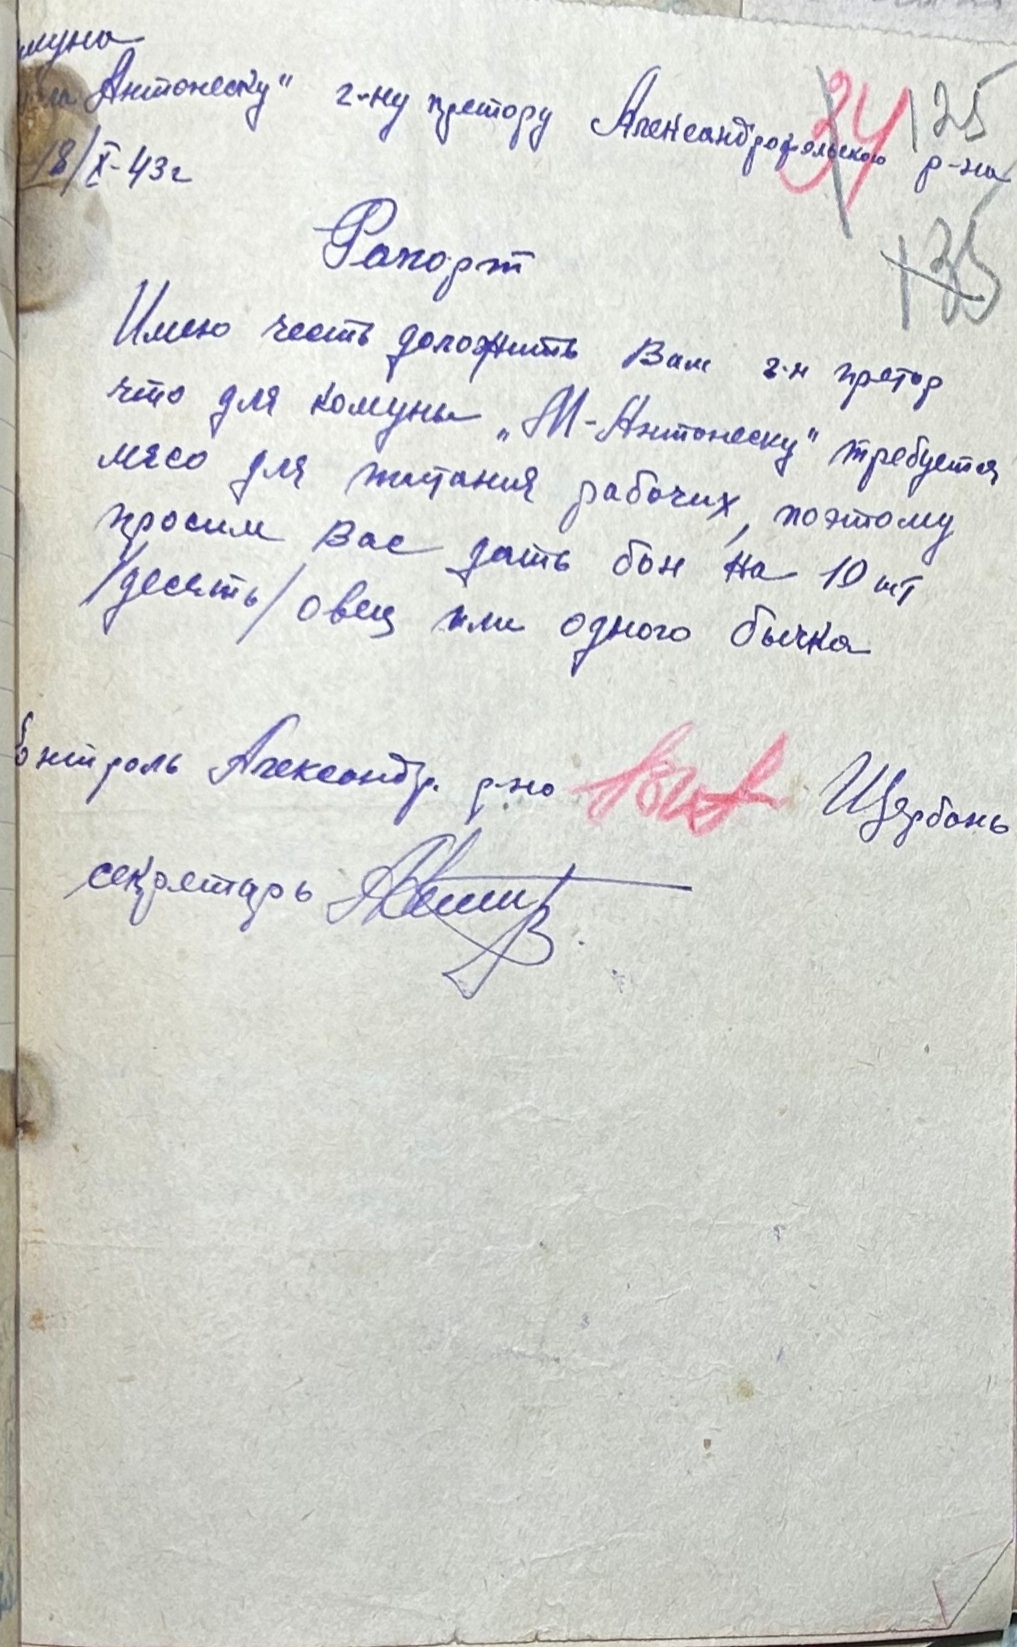 муна
Антонеску" г-ну претору Александрофельского р-на
34 125
18/X-43г
135
Рапорт
Имею честь доложить Вам г-н претор
что для комуны „М-Антонеску" требуется
мясо для питания рабочих, поэтому
просим Вас дать бон на 10 шт
/десять/ овец или одного бычка
онтроль Александр. р-на Щербань
секретарь